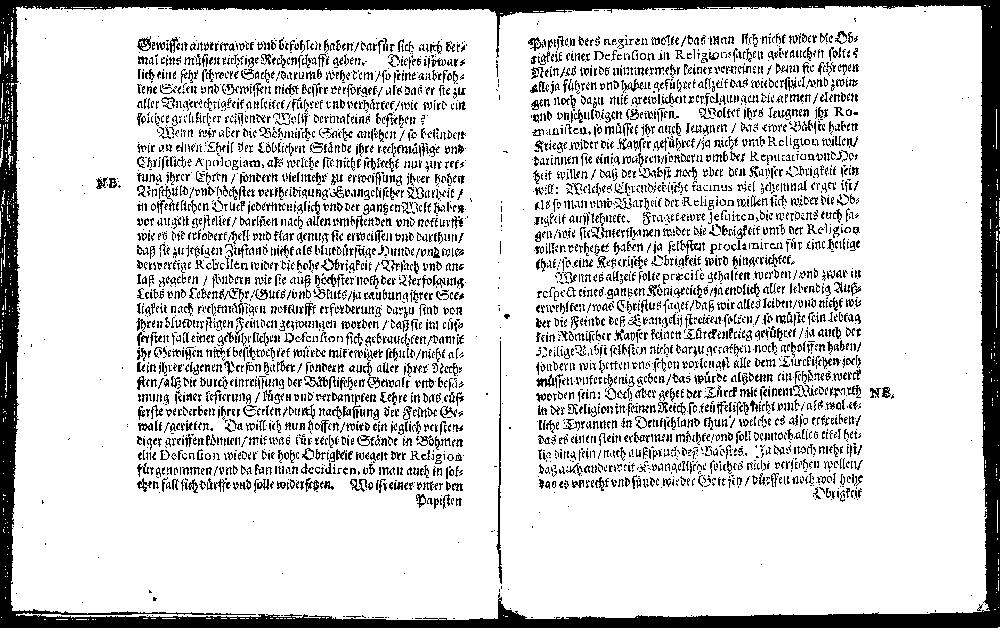 Gewissen anvertrawet vnd befohlen haben/darfür sich auch der-
mal eins müssen richtige Rechenschafft geben. Dieses ist war-
lich eine sehr schwere Sache/darumb wehe dem/so seine anbefoh-
lene Seelen vnd Gewissen nicht besser versorget/als das er sie zu
aller Vngerechtigkeit anleitet/führet vnd verhärtet/wie wird ein
solcher grewlicher reissender Wolff dermaleins bestehen?
Wenn wir aber die Böhmische Sache ansehen/so befinden
wir an einen Theil der Löblichen Stände ihre rechtmässige vnd
Christliche Apologiam, als welche sie nicht schlecht nur zur ret-
tung ihrer Ehren/sondern vielmehr zu erweissung ihrer hohen
NB. Vnschuld/vnd höchster vertheidigung Evangelischer Warheit/
in offentlichen Druck jedermenniglich vnd der gantzen Welt haben
vor augen gestellet/darinnen nach allen vmbstenden vnd notturfft
wie es die erfodert/hell vnd klar genug sie erweissen vnd darthun/
daß sie zu jetzigen Zustand nicht als blutdürstige Hunde/vnd wie-
derwertige Rebellen wider die hohe Obrigkeit/Vrsach vnd an-
laß gegeben/sondern wie sie auß höchster noth der Verfolgung
Leibs vnd Lebens/Ehr/Guts/vnd Bluts/ja raubung ihrer See-
ligkeit nach rechtmässigen notturfft erforderung darzu sind von
jhren blutdurstigen Feinden gezwungen worden/daß sie im eus-
sersten fall einer gebührlichen Defension sich gebrauchten/damit
jhr Gewissen nicht beschweret würde mit ewiger schuld/nicht al-
lein ihrer eigenen Person halber/sondern auch aller ihrer Nech-
sten/alß die durch einreissung der Bäbstischen Gewalt vnd besä-
mung seiner lesterung/lügen vnd verdampten Lehre in das eus-
serste verderben ihrer Seelen/durch nachlassung der Feinde Ge-
walt/gerieten. Da will ich nun hoffen/wird ein jeglich versten-
diger greiffen können/mit was für recht die Stände in Böhmen
eine Defension wieder die hohe Obrigkeit wegen der Religion
fürgenommen/vnd da kan man decidiren, ob man auch in sol-
chen fall sich dürffe vnd solle widersetzen. Wo ist einer vnter den
Papisten
Papisten ders negiren wolte/das man sich nicht wider die Ob-
rigkeit einer Defension in Religionssachen gebrauchen solte?
Nein/es wirds nimmermehr keiner verneinen/denn sie schreyen
alle ja führen vnd haben geführet allzeit das wiederspiel/vnd zwin-
gen noch dazu mit grewlichen verfolgungen die armen/elenden
vnd vnschuldigen Gewissen. Woltet ihrs leugnen ihr Ro-
manisten, so müsset ihr auch leugnen/das ewre Bäbste haben
Kriege wider die Kayser geführet/ja nicht vmb Religion willen/
darinnen sie einig wahren/sondern vmb des Reputation vnd Ho-
heit willen/daß der Babst noch vber den Kayser Obrigkeit sein
will: Welches Ehrendiebische facinus viel zehenmal erger ist/
als so man vmb Warheit der Religion willen sich wider die Ob-
rigkeit aufflehnete. Fraget ewre Jesuiten, die werdens euch sa-
gen/wie sie Vnterthanen wider die Obrigkeit vmb der Religion
willen verhetzet haben/ja selbsten proclamiren für eine heilige
that/so eine Ketzerische Obrigkeit wird hingerichtet.
Wenn es allzeit solte præcisè gehalten werden/vnd zwar in
respect eines gantzen Königreichs/ja endlich aller lebendig Auß-
erwehlten/was Christus saget/daß wir alles leiden/vnd nicht wi-
der die Feinde deß Evangelij streiten solten/so müste sein lebtag
kein Römischer Kayser keinen Türckenkrieg geführet/ja auch der
Heilige Babst selbsten nicht darzu gerathen noch geholffen haben/
sondern wir hetten vns schon vorlengst alle dem Türckischen joch
müssen vnterthenig geben/das würde alßdenn ein schönes werck
worden sein: Doch aber gehet der Türck mit seinem Wiederparth NB.
in der Religion in seinen Reich so teuffelisch nicht vmb/als wol et-
liche Tyrannen in Deutschland thun/welche es also ertreiben/
das es einen stein erbarmen möchte/vnd soll dennoch alles eitel hei-
lig ding sein/nach außspruch deß Babstes. Ja das noch mehr ist/
daß auch anderweit Evangelische solches nicht verstehen wollen/
das es vnrecht vnd sünde wieder Gott sey/dürffen noch wol hohe
Obrigkeit